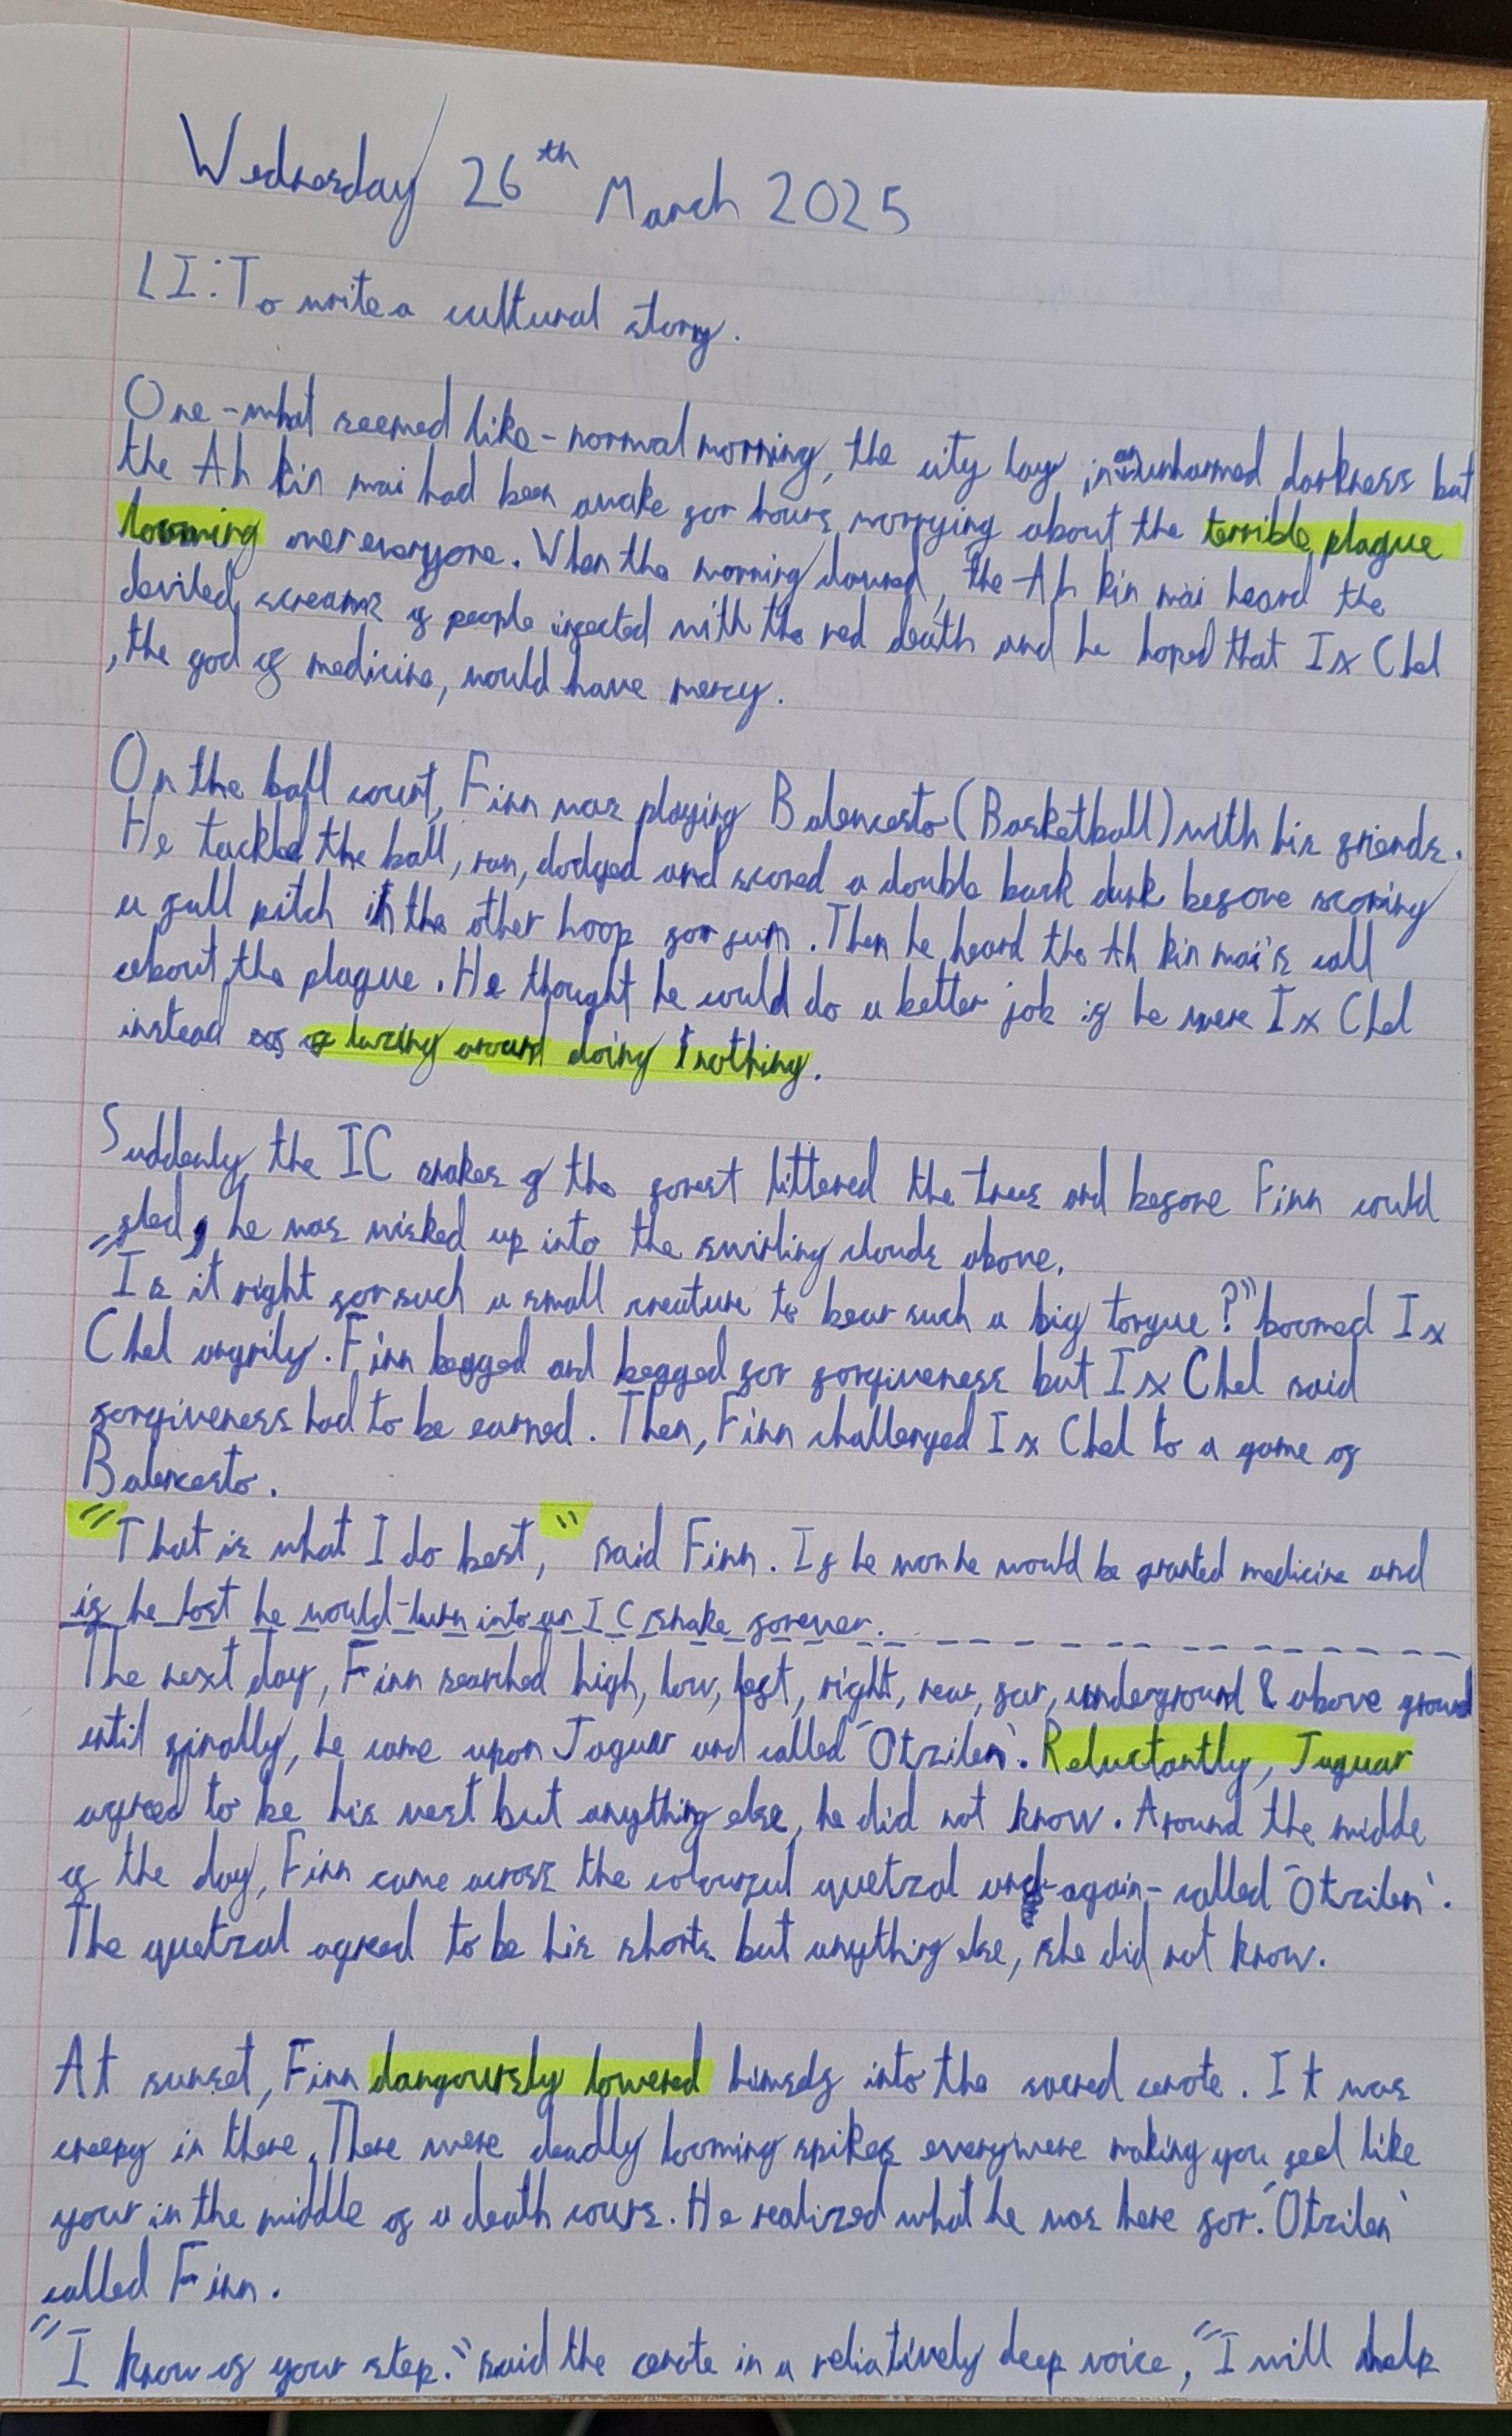 Wednesday 26th March 2025
LI: To write a cultural story.
One - what seemed like - normal morning, the city lay in an unharmed darkness but
the Ah kin mai had been awake for hours worrying about the terrible plague
looming over everyone. When the morning dawned, the Ah kin mai heard the
deviled screams of people infected with the red death and he hoped that Ix Chel
, the god of medicine, would have mercy.
On the ball court, Finn was playing Balencesto (Basketball) with his friends.
He tackled the ball, ran, dodged and scored a double back dunk before scoring
a full pitch in the other hoop for fun. Then he heard the Ah kin mai's call
about the plague. He thought he could do a better job if he were Ix Chel
instead of lazing around doing nothing.
Suddenly, the IC snakes of the forest littered the trees and before Finn could
fled, he was wisked up into the swirling clouds above.
"Is it right for such a small creature to bear such a big tongue?" boomed Ix
Chel angrily. Finn begged and begged for forgiveness but Ix Chel said
forgiveness had to be earned. Then, Finn challenged Ix Chel to a game of
Balencesto.
"That is what I do best," said Finn. If he won he would be granted medicine and
if he lost he would turn into an IC snake forever.
The next day, Finn searched high, low, left, right, near, far, underground & above ground
until finally, he came upon Jaguar and called 'Otzilen'. Reluctantly, Jaguar
agreed to be his vest but anything else, he did not know. Around the midde
of the day, Finn came across the colourful quetzal and - again - called 'Otzilen'.
The quetzal agreed to be his shorts but anything else, she did not know.
At sunset, Finn dangoursly lowered himself into the sacred cenote. It was
creepy in there. There were deadly looming spikes everywere making you feel like
your in the middle of a death cours. He realized what he was here for. 'Otzilen'
called Finn.
"I know of your step." said the cenote in a reliatively deep voice, "I will help